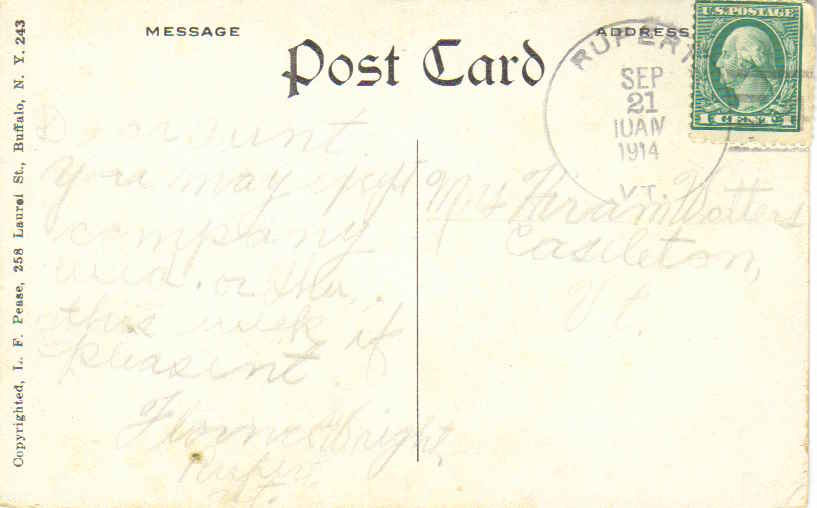 MESSAGE
ADDRESS
Post Card
U.S. POSTAGE
1 CENT 1
RUPERT
SEP
21
10AM
1914
VT.
Copyrighted, L. F. Pease, 258 Laurel St., Buffalo, N. Y. 243
Dear aunt
You may expect
company
wed. or thu,
this week if
pleasent
Wright,
Rupert
Vt.
Hiram Watters
Castleton,
Vt.